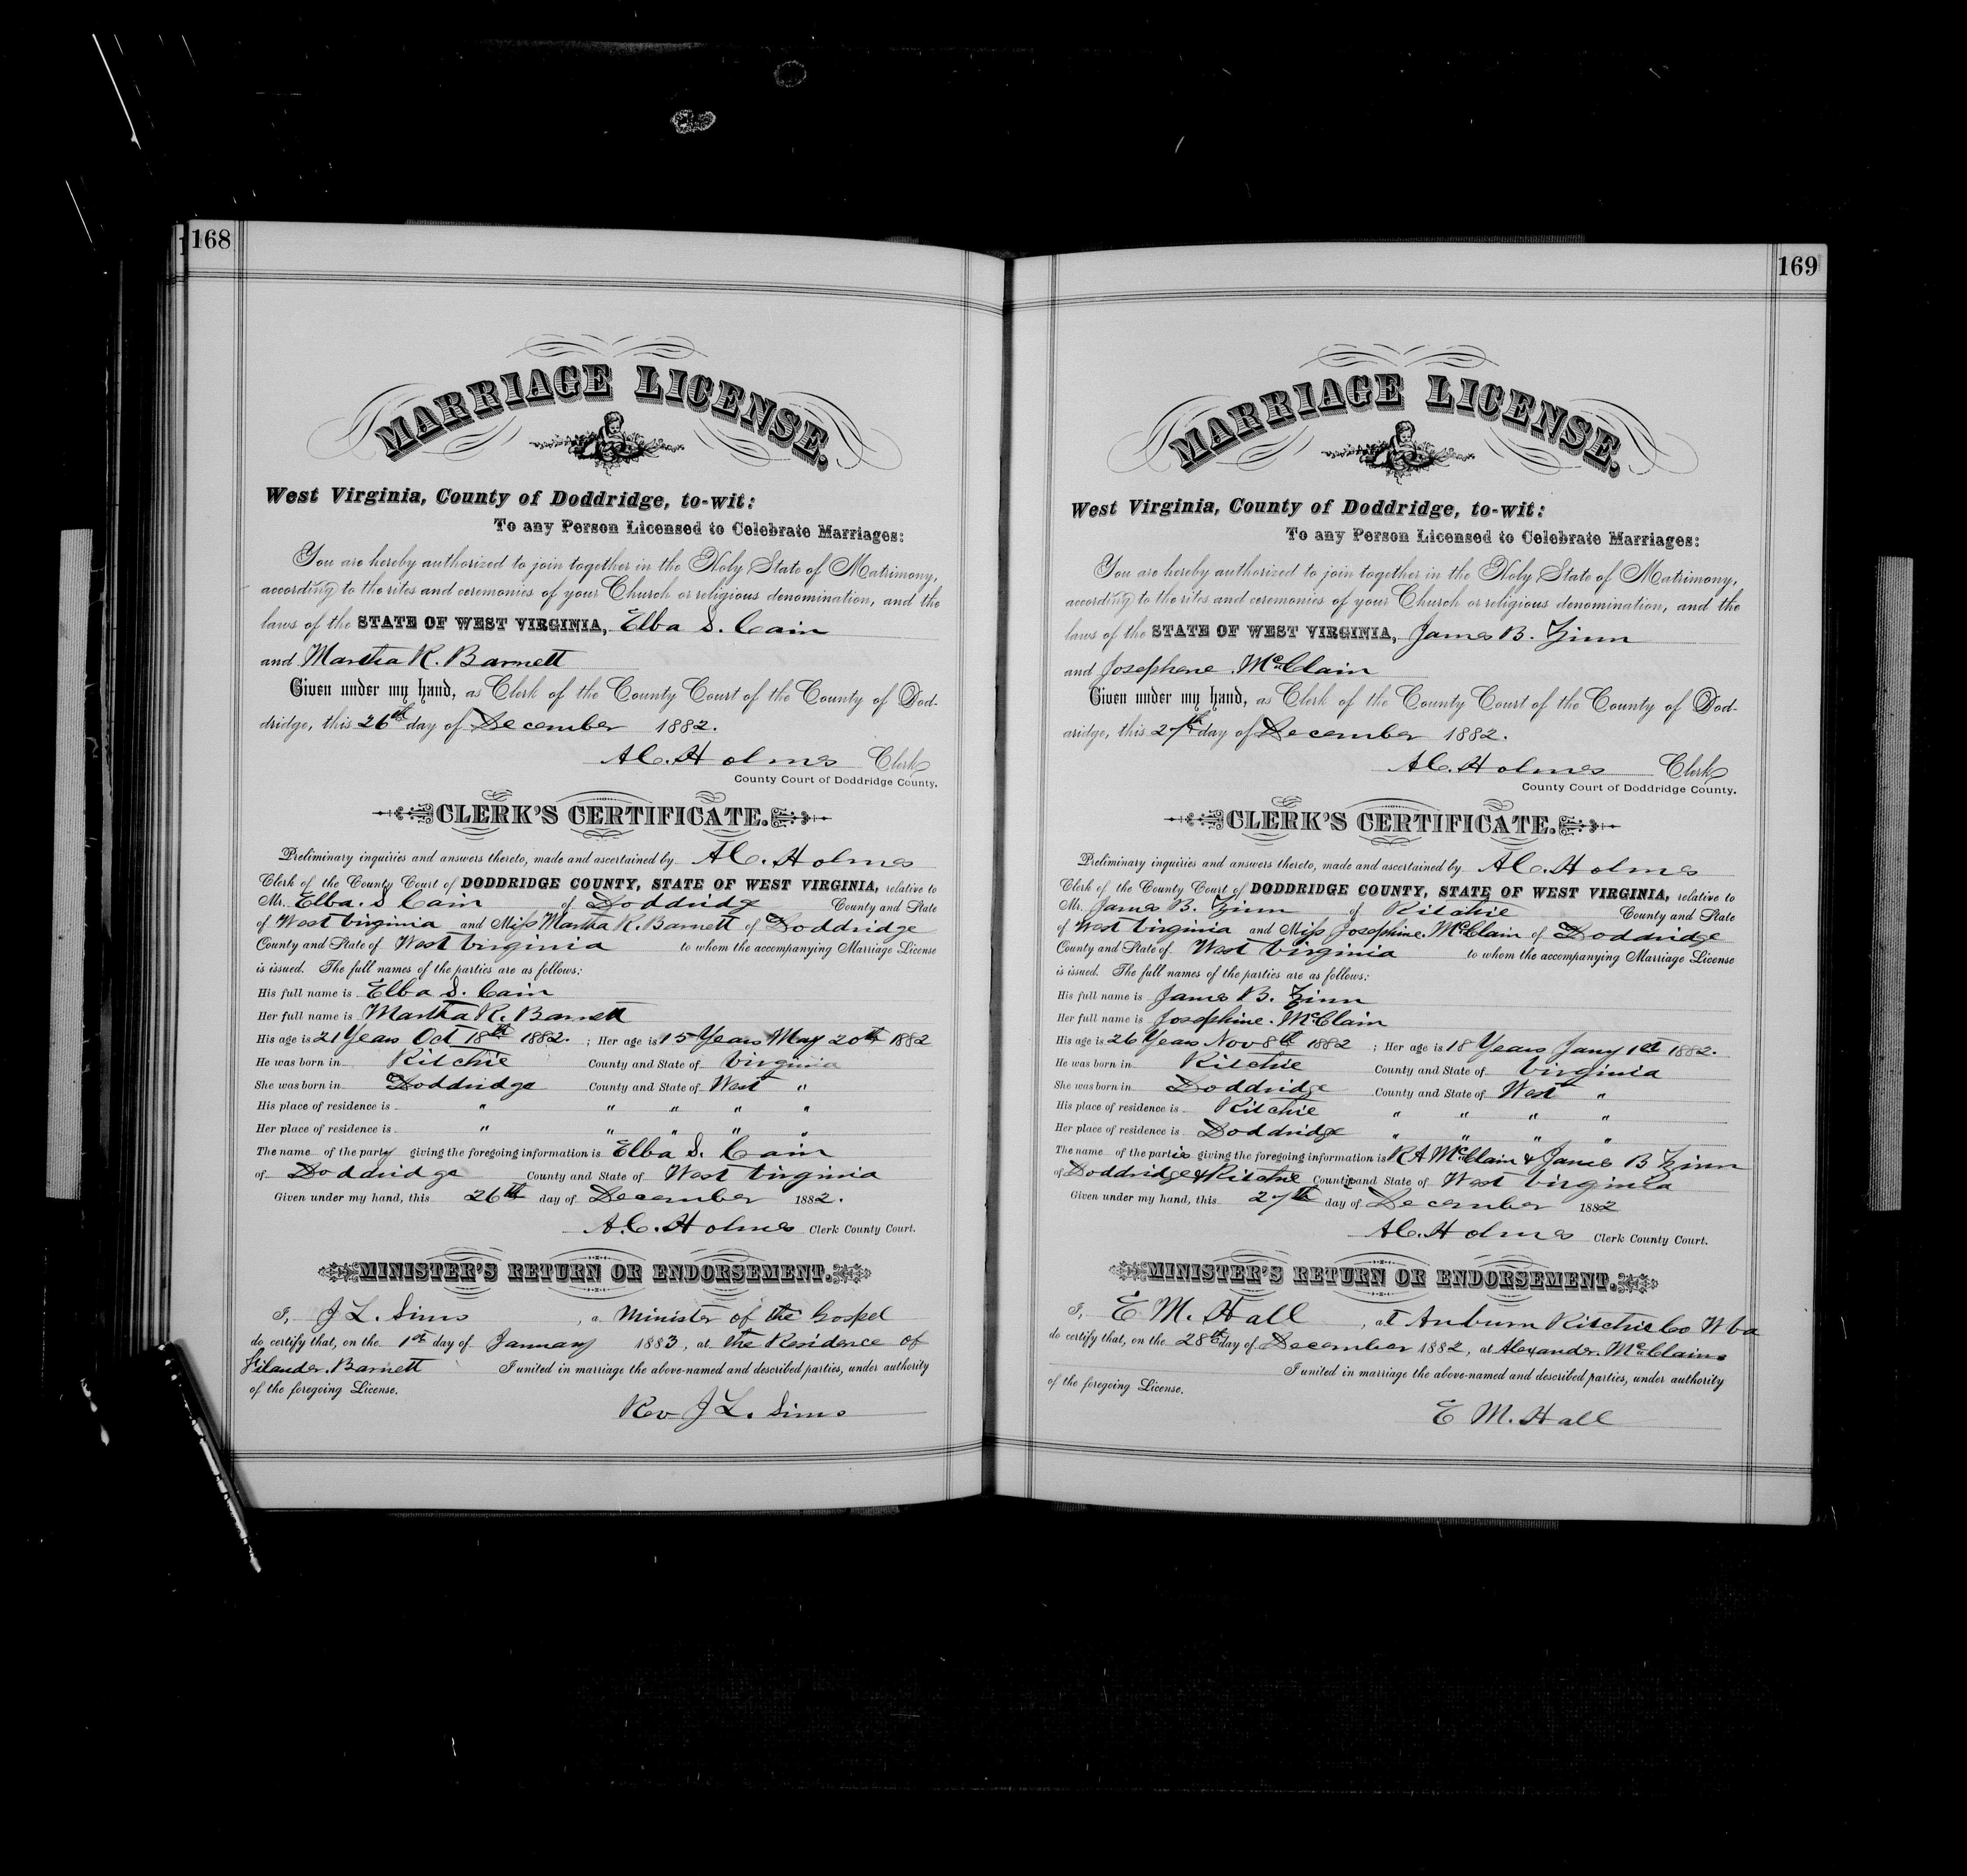 168
MARRIAGE LICENSE.
West Virginia, County of Doddridge, to-wit:
To any Person Licensed to Celebrate Marriages:
You are hereby authorized to join together in the Holy State of Matrimony,
according to the rites and ceremonies of your Church or religious denomination, and the
laws of the STATE OF WEST VIRGINIA, Elba S. Cain
and Martha R. Barnett
Given under my hand, as Clerk of the County Court of the County of Dod-
dridge, this 26th day of December 1882.
A.C. Holmes Clerk
County Court of Doddridge County.
CLERK'S CERTIFICATE.
Preliminary inquiries and answers thereto, made and ascertained by A.C. Holmes
Clerk of the County Court of DODDRIDGE COUNTY, STATE OF WEST VIRGINIA, relative to
Mr. Elba. S Cain of Doddridge County and State
of West Virginia and Miss Martha R. Barnett of Doddridge
County and State of West Virginia to whom the accompanying Marriage License
is issued. The full names of the parties are as follows:
His full name is Elba S. Cain
Her full name is Martha R. Barnett
His age is 21 Years Oct 18th 1882. ; Her age is 15 Years May 20th 1882
He was born in Ritchie County and State of Virginia
She was born in Doddridge County and State of West "
His place of residence is " " " " "
Her place of residence is " " " " "
The name of the party giving the foregoing information is Elba S. Cain
of Doddridge County and State of West Virginia
Given under my hand, this 26th day of December 1882.
A.C. Holmes Clerk County Court.
MINISTER'S RETURN OR ENDORSEMENT.
I, J L. Sims , a Minister of the Gospel
do certify that, on the 1st day of January 1883, at the Residence of
Filander. Barnett I united in marriage the above-named and described parties, under authority
of the foregoing License.
Rev J L. Sims
169
MARRIAGE LICENSE.
West Virginia, County of Doddridge, to-wit:
To any Person Licensed to Celebrate Marriages:
You are hereby authorized to join together in the Holy State of Matrimony,
according to the rites and ceremonies of your Church or religious denomination, and the
laws of the STATE OF WEST VIRGINIA, James B. Zinn
and Josephene McClain
Given under my hand, as Clerk of the County Court of the County of Dod-
dridge, this 27th day of December 1882.
A.C. Holmes Clerk
County Court of Doddridge County.
CLERK'S CERTIFICATE.
Preliminary inquiries and answers thereto, made and ascertained by A.C. Holmes
Clerk of the County Court of DODDRIDGE COUNTY, STATE OF WEST VIRGINIA, relative to
Mr. James B. Zinn of Ritchie County and State
of West Virginia and Miss Josephine. McClain of Doddridge
County and State of West Virginia to whom the accompanying Marriage License
is issued. The full names of the parties are as follows:
His full name is James B. Zinn
Her full name is Josephine. McClain
His age is 26 Years Nov 8th 1882 ; Her age is 18 Years Jany 1st 1882.
He was born in Ritchie County and State of Virginia
She was born in Doddridge County and State of West "
His place of residence is Ritchie " " " "
Her place of residence is Doddridge " " " "
The name of the parties giving the foregoing information is R A McClain & James B Zinn
of Doddridge & Ritchie Counties and State of West Virginia
Given under my hand, this 27th day of December 1882
A.C. Holmes Clerk County Court.
MINISTER'S RETURN OR ENDORSEMENT.
I, E M. Hall , at Auburn Ritchie Co W Va
do certify that, on the 28th day of December 1882, at Alexander. McClains
I united in marriage the above-named and described parties, under authority
of the foregoing License.
E M. Hall